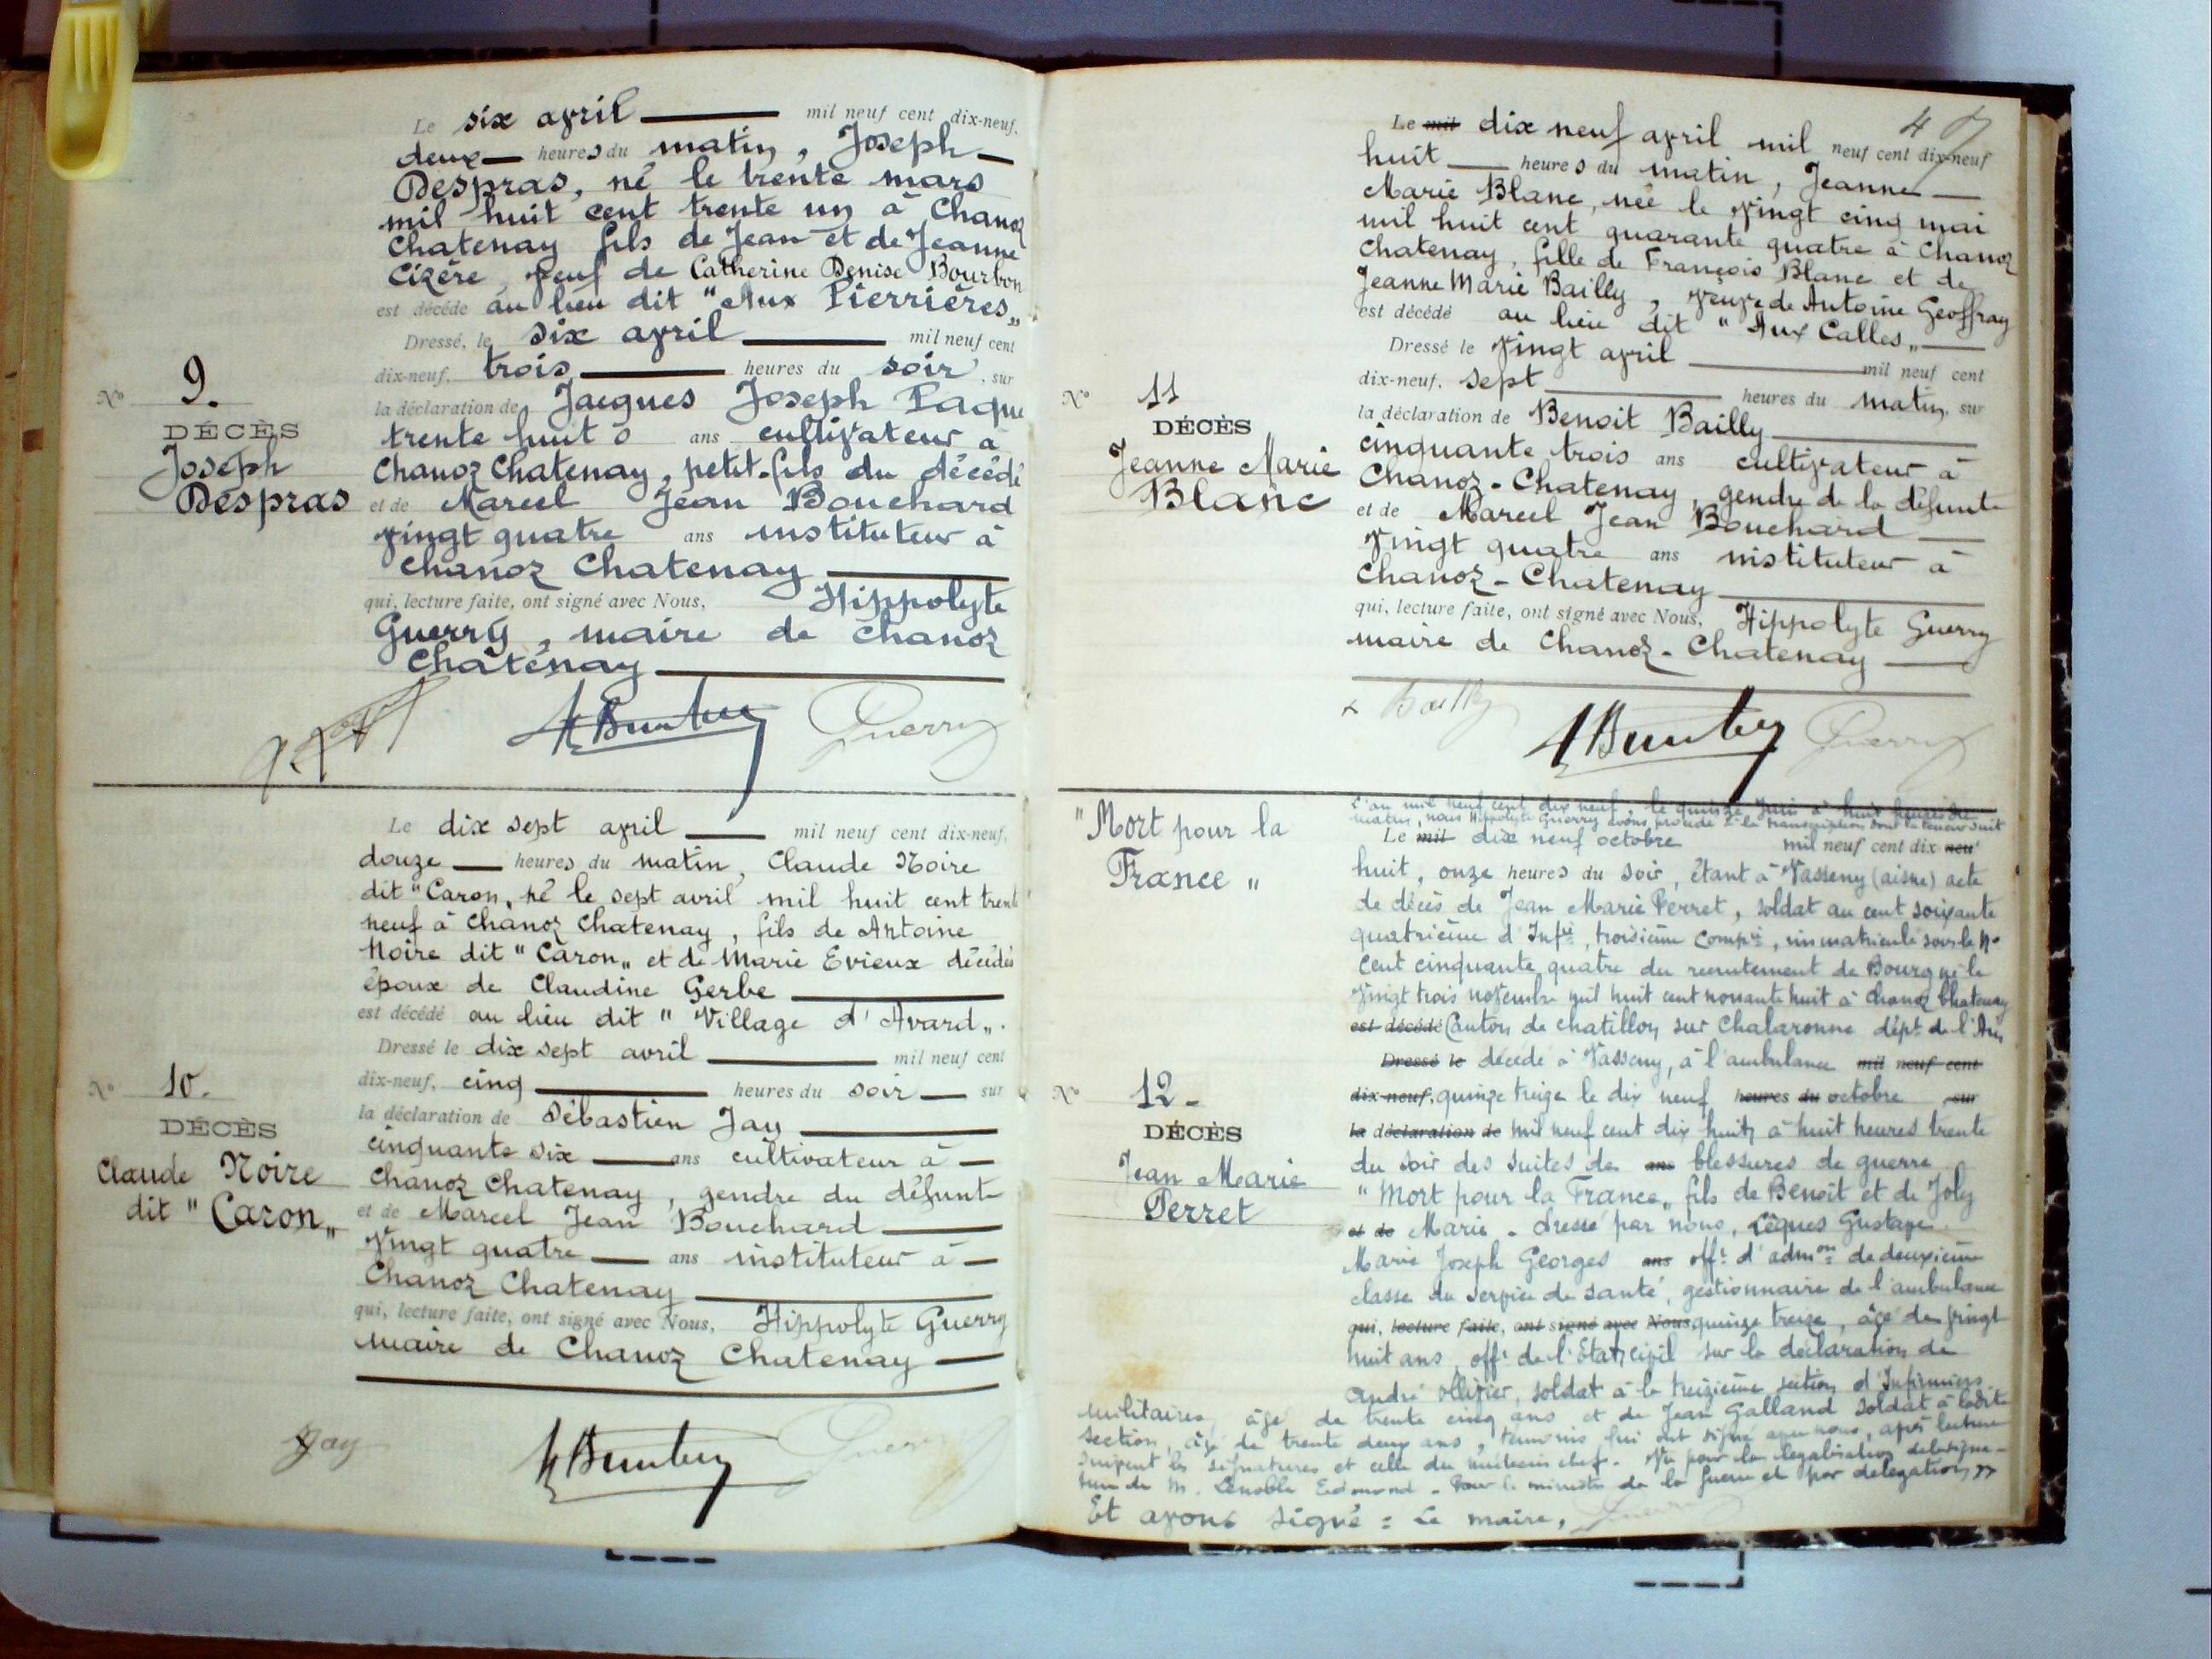 Le six avril mil neuf cent dix-neuf,
deux heures du matin, Joseph
Despras, né le trente mars
mil huit cent trente un à Chanoz
Chatenay fils de Jean et de Jeanne
Cizère, veuf de Catherine Denise Bourbon
est décédé au lieu dit "Aux Pierrières„
Dressé, le six avril mil neuf cent
dix-neuf, trois heures du soir, sur
la déclaration de Jacques Joseph Paque
trente huit ans cultivateur à
Chanoz Chatenay, petit-fils du décédé
et de Marcel Jean Bouchard
vingt quatre ans instituteur à
Chanoz Chatenay
qui, lecture faite, ont signé avec Nous, Hippolyte
Guerry, maire de Chanoz
Châtenay
Guerry
No 9.
DÉCÈS
Joseph
Despras
Le dix sept avril mil neuf cent dix-neuf,
douze heures du matin, Claude Noire
dit "Caron„ né le sept avril mil huit cent trente
neuf à Chanoz Chatenay, fils de Antoine
Noire dit "Caron„ et de Marie Evieux décédés
époux de Claudine Gerbe
est décédé au lieu dit "Village d'Avard„.
Dressé le dix sept avril mil neuf cent
dix-neuf, cinq heures du soir sur
la déclaration de Sébastien Jay
cinquante six ans cultivateur à
Chanoz Chatenay, gendre du défunt
et de Marcel Jean Bouchard
vingt quatre ans instituteur à
Chanoz Chatenay
qui, lecture faite, ont signé avec Nous, Hippolyte Guerry
maire de Chanoz Chatenay
Jay Guerry
No 10.
DÉCÈS
Claude Noire
dit "Caron„
Le mil dix neuf avril mil neuf cent dix-neuf
huit heures du matin, Jeanne
Marie Blanc, née le vingt cinq mai
mil huit cent quarante quatre à Chanoz
Chatenay, fille de François Blanc et de
Jeanne Marie Bailly, veuve de Antoine Geoffray
est décédé au lieu dit "Aux Calles„
Dressé le vingt avril mil neuf cent
dix-neuf, sept heures du matin, sur
la déclaration de Benoit Bailly
cinquante trois ans cultivateur à
Chanoz-Chatenay, gendre de la défunte
et de Marcel Jean Bouchard
vingt quatre ans instituteur à
Chanoz-Chatenay
qui, lecture faite, ont signé avec Nous, Hippolyte Guerry
maire de Chanoz-Chatenay
Bailly Guerry
No 11
DÉCÈS
Jeanne Marie
Blanc
"Mort pour la
France"
L'an mil neuf cent dix neuf, le quinze Juin à huit heures du
matin, nous Hippolyte Guerry avons procédé à la transcription dont la teneur suit
Le mil dix neuf octobre mil neuf cent dix neuf
huit, onze heures du soir, étant à Vasseny (aisne) acte
de décès de Jean Marie Perret, soldat au cent soixante
quatrième d'Inf.ie, troisième Comp.ie, immatriculé sous le No
cent cinquante quatre du recrutement de Bourg né le
vingt trois novembre mil huit cent nonante huit à Chanoz Chatenay
est décédé Canton de chatillon sur Chalaronne dépt de l'Ain
Dressé le décédé à Vasseny, à l'ambulance mil neuf cent
dix-neuf, quinze treize le dix neuf heures du octobre sur
la déclaration de mil neuf cent dix huit, à huit heures trente
du soir des suites de ans blessures de guerre
"Mort pour la France„ fils de Benoit et de Joly
et de Marie - dressé par nous, Lèques Gustave
Marie Joseph Georges ans off.r d'adm.on de deuxième
classe du service de santé, gestionnaire de l'ambulance
qui, lecture faite, ont signé avec Nous, quinze treize, âgé de vingt
huit ans, off.r de l'Etat civil sur la déclaration de
André Ollivier, soldat à la treizième section d'Infirmiers
militaires, âgé de trente cinq ans et de Jean Galland soldat à ladite
section, âgé de trente deux ans, témoins qui ont signé avec nous, après lecture
suivent les signatures et celle du médecin chef. Vu pour la légalisation de la signa-
ture de M. Lenoble Edmond. Pour le ministre de la guerre et par délégation
Et avons signé : Le maire, Guerry
No 12-
DÉCÈS
Jean Marie
Perret